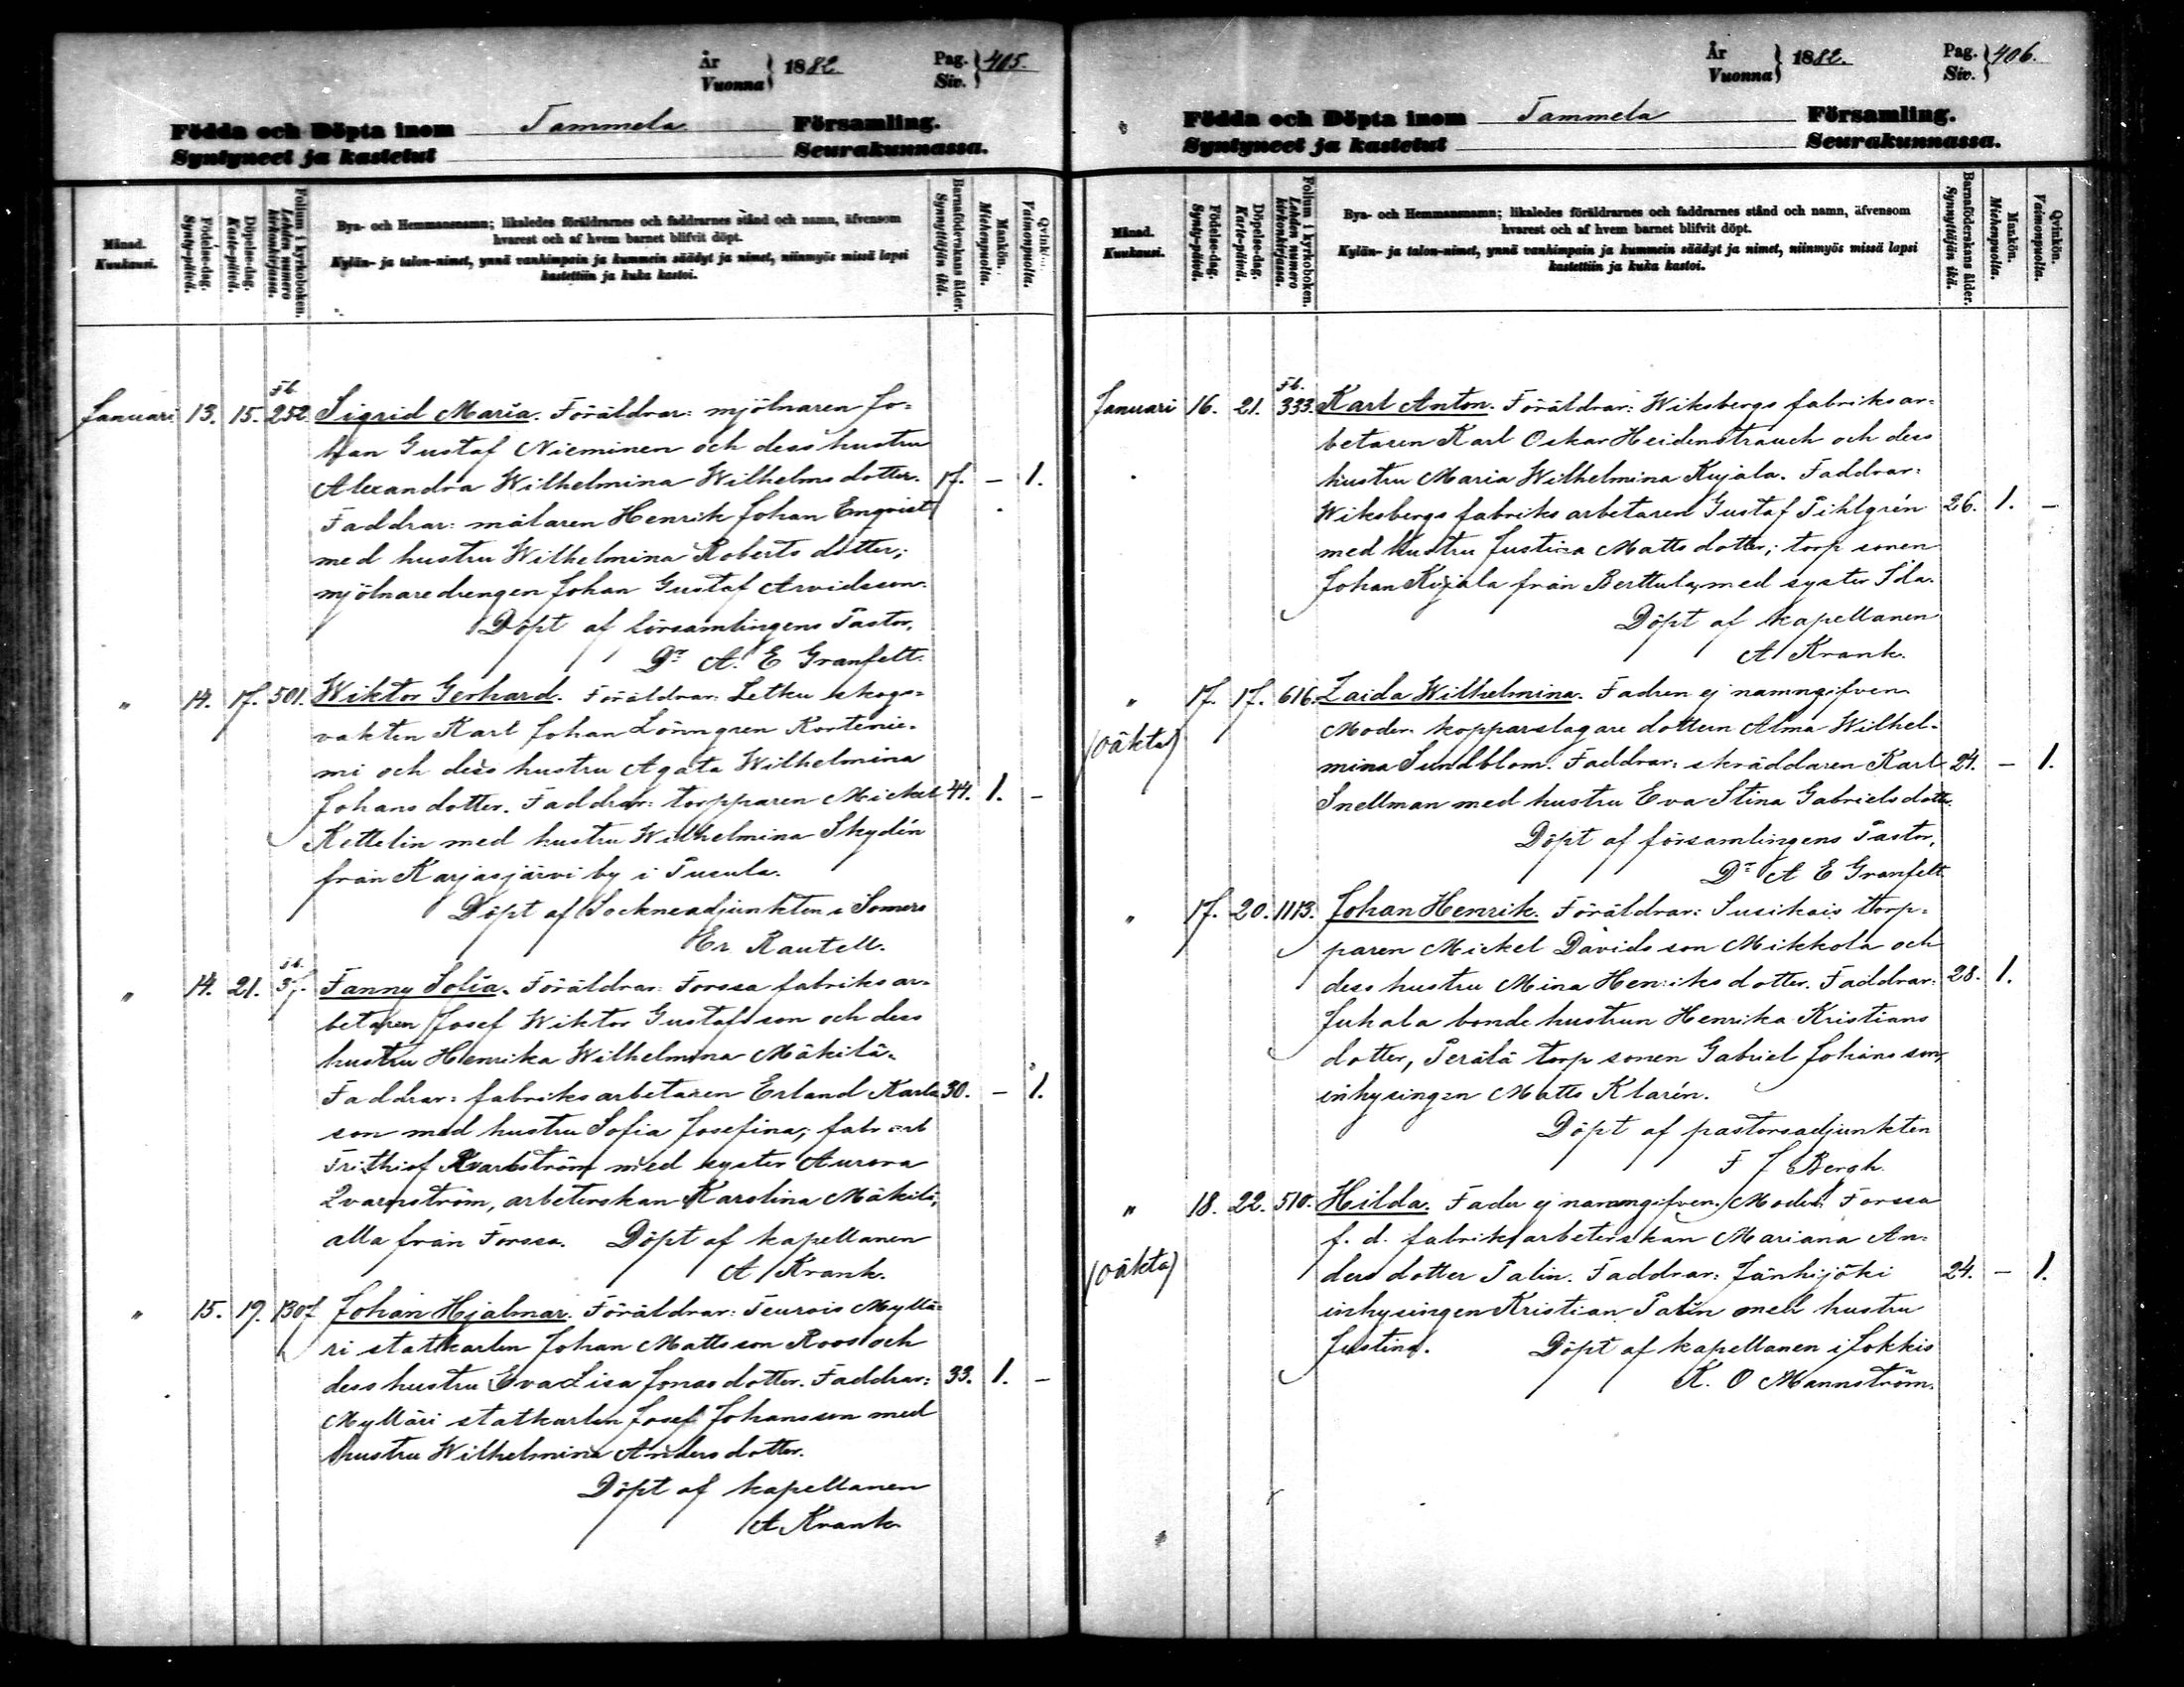 År
Vuonna } 1882
Pag.
Siv. } 405.
Födda och Döpta inom Tammela Församling.
Syntyneet ja kastetut Seurakunnassa.
Månad.
Kuukausi.
Födelse-dag.
Synty-päivä.
Döpelse-dag.
Kaste-päivä.
Folium i kyrkoboken.
Lehden numero
kirkonkirjassa.
Bya- och Hemmansnamn; likaledes föräldrarnes och faddrarnes stånd och namn, äfvensom
hvarest och af hvem barnet blifvit döpt.
Kylän- ja talon-nimet, ynnä vanhimpain ja kummein säädyt ja nimet, niinmyös missä lapsi
kastettiin ja kuka kastoi.
Barnaföderskans ålder.
Synnyttäjän ikä.
Mankön.
Miehenpuolta.
Qvinkön.
Vaimonpuolta.
Januari 13. 15. Fb. 252 Sigrid Maria. Föräldrar: mjölnaren Jo=
han Gustaf Nieminen och dess hustru
Alexandra Wilhelmina Wilhelms dotter. 17. – 1.
Faddrar: målaren Henrik Johan Enqvist
med hustru Wilhelmina Roberts dotter;
mjölnaredrengen Johan Gustaf Arvidsson.
Döpt af församlingens Pastor,
Dr A. E Granfelt.
" 14. 17. 501. Wiktor Gerhard. Föräldrar: Letku skogs=
vakten Karl Johan Lönngren Kortenie=
mi och dess hustru Agata Wilhelmina
Johans dotter. Faddrar: torpparen Mickel 44. 1. –
Kettelin med hustru Wilhelmina Skydén
från Karjasjärvi by i Pusula.
Döpt af Sockneadjunkten i Somero
Er. Rautell.
" 14. 21. Fb. 37. Fanny Sofia. Föräldrar: Forssa fabriksar=
betaren Josef Wiktor Gustafsson och dess
hustru Henrika Wilhelmina Mäkilä.
Faddrar: fabriksarbetaren Erland Karls 30. – 1.
son med hustru Sofia Josefina; fabr arb
Frithiof Kvarnström med syster Aurora
Qvarnström, arbeterskan Karolina Mäkilä,
alla från Forssa. Döpt af kapellanen
A Krank.
" 15. 19. 1307 Johan Hjalmar. Föräldrar: Teurois Myllä=
ri statkarlen Johan Matts son Roos och
dess hustru Eva Lisa Jonas dotter. Faddrar: 33. 1. –
Mylläri statkarlen Josef Johansson med
hustru Wilhelmina Anders dotter.
Döpt af kapellanen
A Krank
År
Vuonna } 1882.
Pag.
Siv. } 406.
Födda och Döpta inom Tammela Församling.
Syntyneet ja kastetut Seurakunnassa.
Månad.
Kuukausi.
Födelse-dag.
Synty-päivä.
Döpelse-dag.
Kaste-päivä.
Folium i kyrkoboken.
Lehden numero
kirkonkirjassa.
Bya- och Hemmansnamn; likaledes föräldrarnes och faddrarnes stånd och namn, äfvensom
hvarest och af hvem barnet blifvit döpt.
Kylän- ja talon-nimet, ynnä vanhimpain ja kummein säädyt ja nimet, niinmyös missä lapsi
kastettiin ja kuka kastoi.
Barnaföderskans ålder.
Synnyttäjän ikä.
Mankön.
Miehenpuolta.
Qvinkön.
Vaimonpuolta.
Januari 16. 21. Fb. 333. Karl Anton. Föräldrar: Wiksbergs fabriksar=
betaren Karl Oskar Heidenstrauch och dess
hustru Maria Wilhelmina Kujala. Faddrar:
Wiksbergs fabriks arbetaren Gustaf Pihlgrén 26. 1. –
med hustru Justina Matts dotter; torp sonen
Johan Kujala från Berttula, med syster Ida.
Döpt af kapellanen
A Krank.
" 17. 17. 616. Zaida Wilhelmina. Fadren ej namngifven
(oäkta) Moder: kopparslagare dottern Alma Wilhel=
mina Sundblom. Faddrar: skräddaren Karl 24. – 1.
Snellman med hustru Eva Stina Gabriels dotter.
Döpt af församlingens Pastor,
Dr A E Granfelt
" 17. 20. 1113. Johan Henrik. Föräldrar: Susikais torp=
paren Mickel Davids son Mikkola och
dess hustru Mina Henriks dotter. Faddrar: 28. 1.
Juhala bonde hustrun Henrika Kristians
dotter, Perälä torp sonen Gabriel Johans son,
inhysingen Matts Klarén.
Döpt af pastorsadjunkten
F J Bergh.
" 18. 22. 510. Hilda. Fader ej namngifven. Moder: Forssa
f. d. fabriksarbeterskan Mariana An=
(oäkta) ders dotter Palin. Faddrar: Jänhijoki 24. – 1.
inhysingen Kristian Palin med hustru
Justina. Döpt af kapellanen i Jokkis
K. O Mannström.